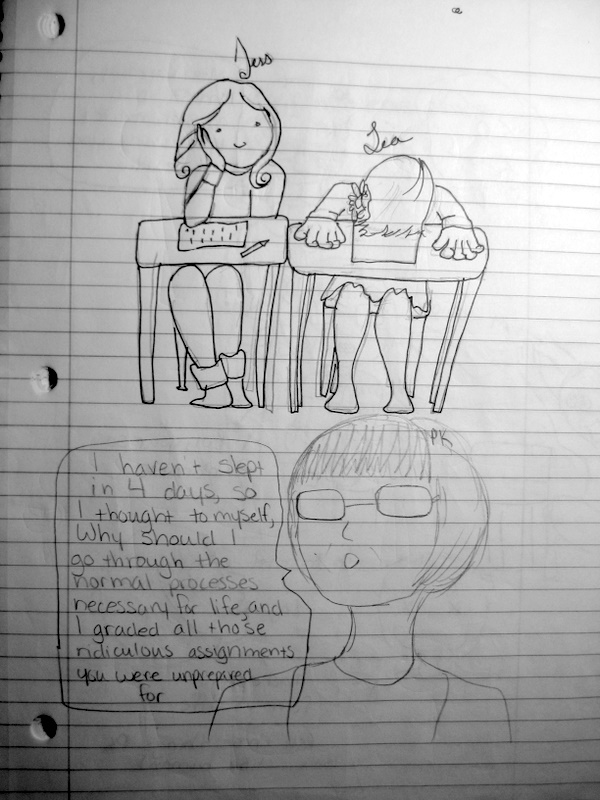 Jess
Lea
PK
I haven't slept
in 4 days, so
I thought to myself,
Why should I
go through the
normal processes
necessary for life, and
I graded all those
ridiculous assignments
you were unprepared
for